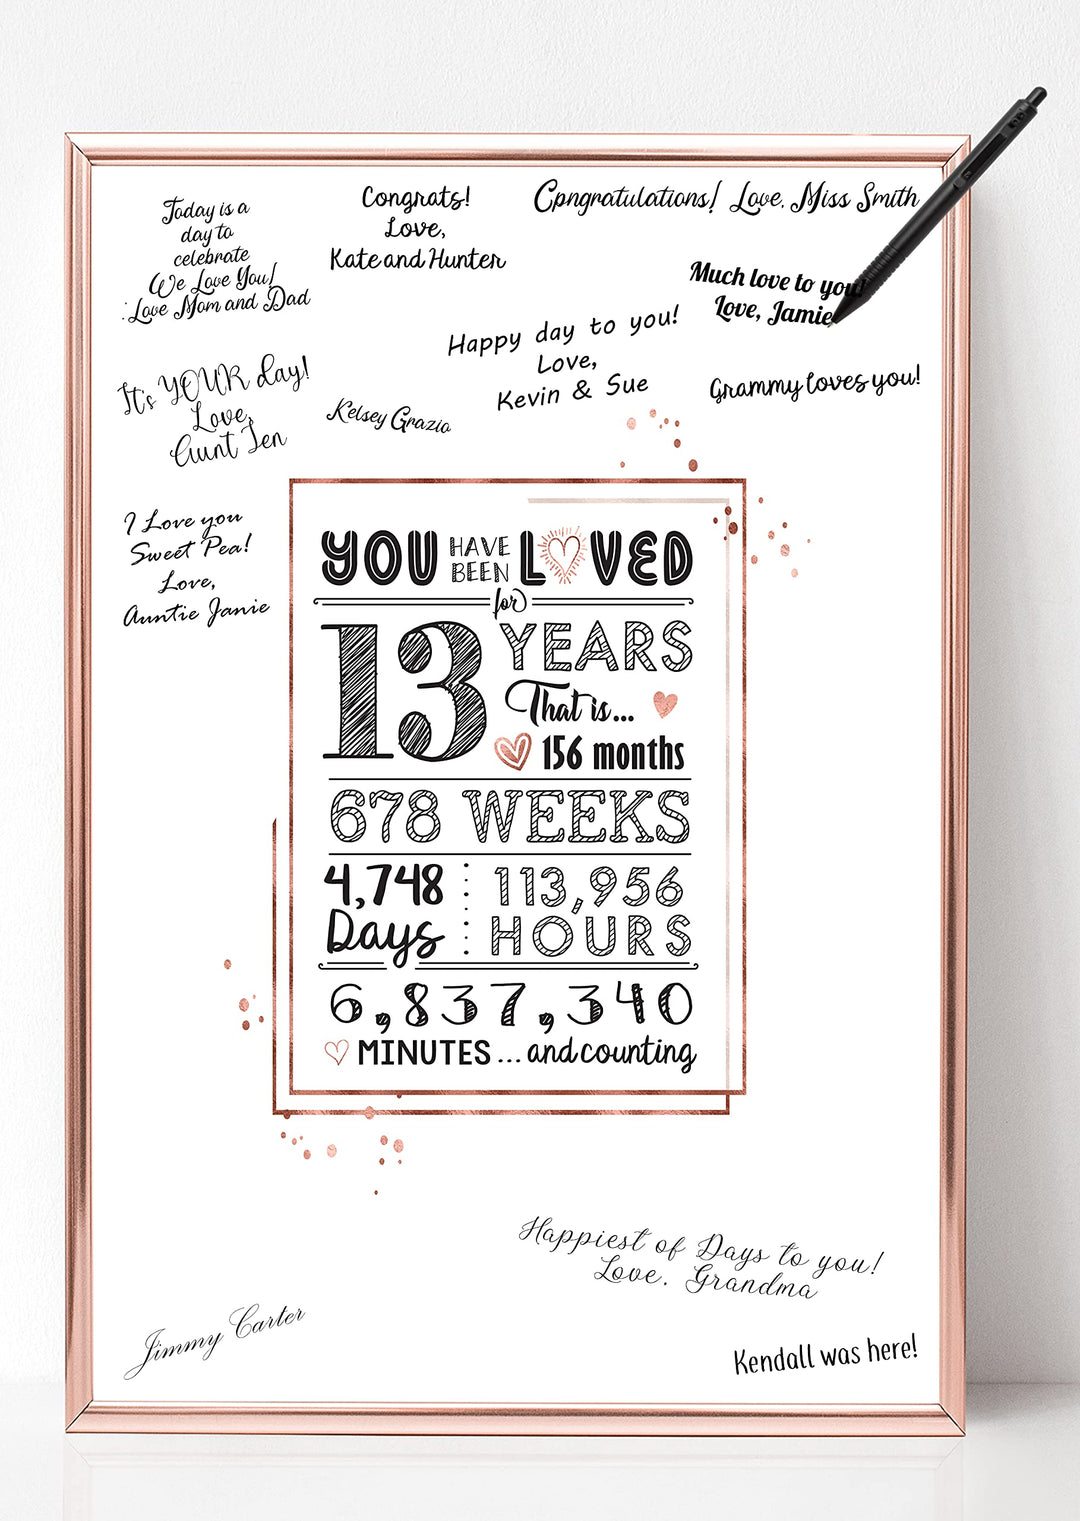 Today is a
day to
celebrate
We Love You!
Love Mom and Dad
Congrats!
Love,
Kate and Hunter
Cpngratulations! Love, Miss Smith
Much love to you!
Love, Jamie
Happy day to you!
Love,
Kevin & Sue
Grammy loves you!
It's YOUR day!
Love,
Aunt Jen
Kelsey Grazio
I Love you
Sweet Pea!
Love,
Auntie Janie
YOU HAVE BEEN LOVED
for
13 YEARS
That is...
156 months
678 WEEKS
4,748 Days
113,956 HOURS
6,837,340
MINUTES ... and counting
Happiest of Days to you!
Love, Grandma
Jimmy Carter
Kendall was here!